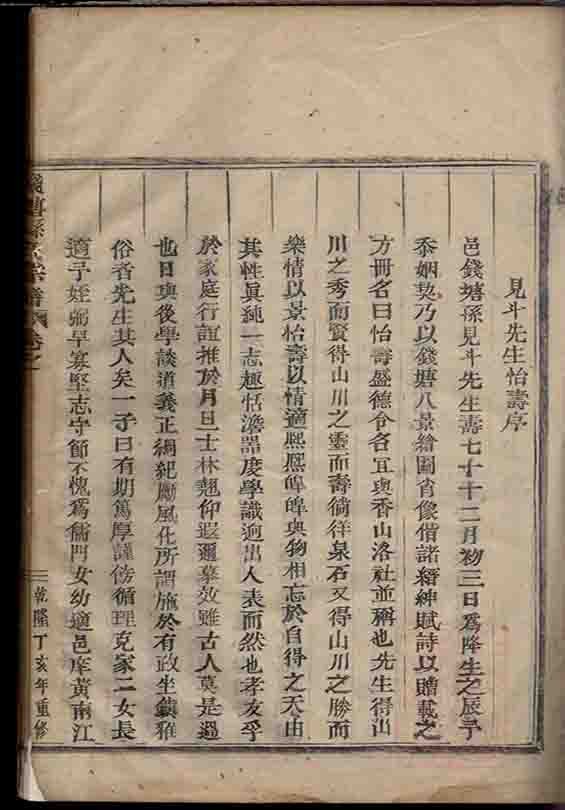 見斗先生怡壽序
邑錢塘孫見斗先生壽七十十二月初三日為降生之辰予
忝姻契乃以錢塘八景繪圖肖像偕諸縉紳賦詩以贈載之
方冊名曰怡壽盛德令名宜與香山洛社並稱也先生得山
川之秀而賢得山川之靈而壽徜徉泉石又得山川之勝而
樂情以景怡壽以情適熈熈皡皡與物相忘於自得之天由
其性眞純一志趣恬澹器度學識逈出人表而然也孝友孚
於家庭行誼推於月旦士林翹仰遐邇摹效雖古人莫是過
也日與後學談道義正綱紀勵風化所謂施於有政坐鎮雅
俗者先生其人矣一子曰有期篤厚謹飭循理克家二女長
適予姪弼早寡堅志守節不愧爲儒門女幼適邑庠黃南江
錢塘孫氏宗譜 卷之一
乾隆丁亥年重修